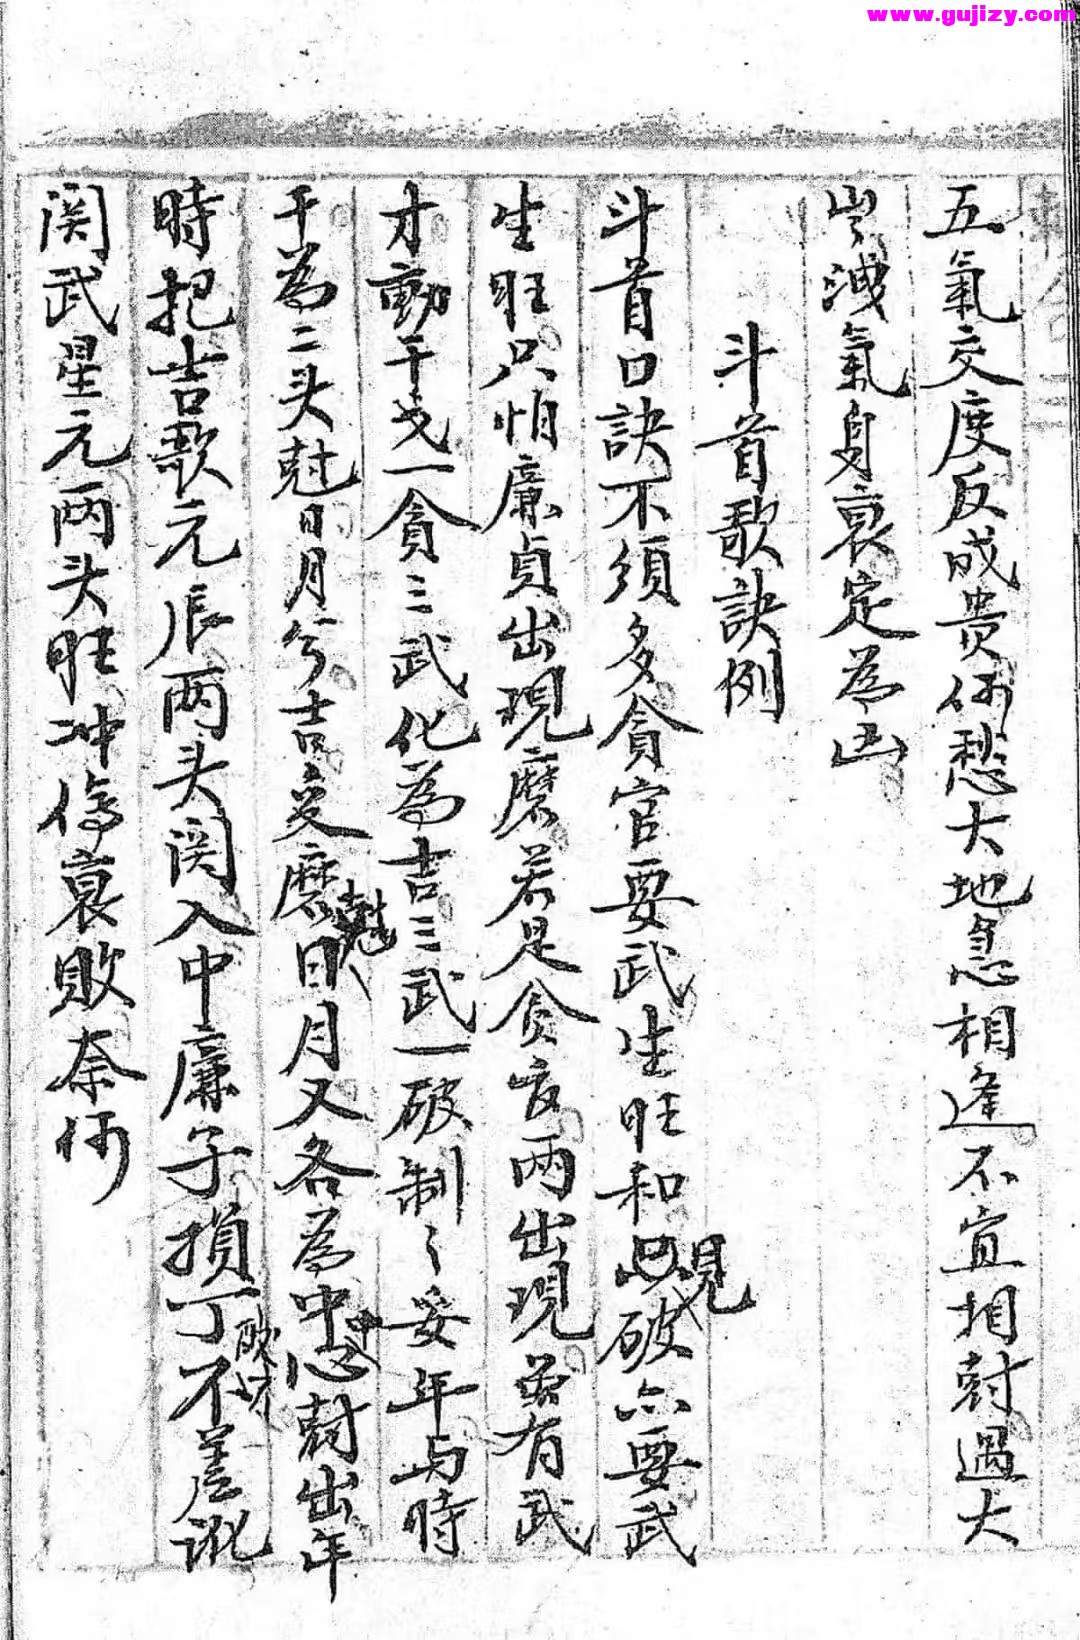 www.gujizy.com
五氣交度反成贵何愁大地急相逢不宜相尅過大
洩氣身衰定為凶
斗首歌訣例
斗首口訣不須多貪官要武生旺和見破六要武
生旺只怕廉貞出現磨若是貪官两出現若有武
才動干戈一貪三武化為吉三武一破制〻妥年与時
干為二头尅日月兮吉受磨尅日月又各為中中心尅出年
時把吉歌元辰两头関入中廉子損丁敗才不差訛
関武星元两头旺冲傷衰敗奈何